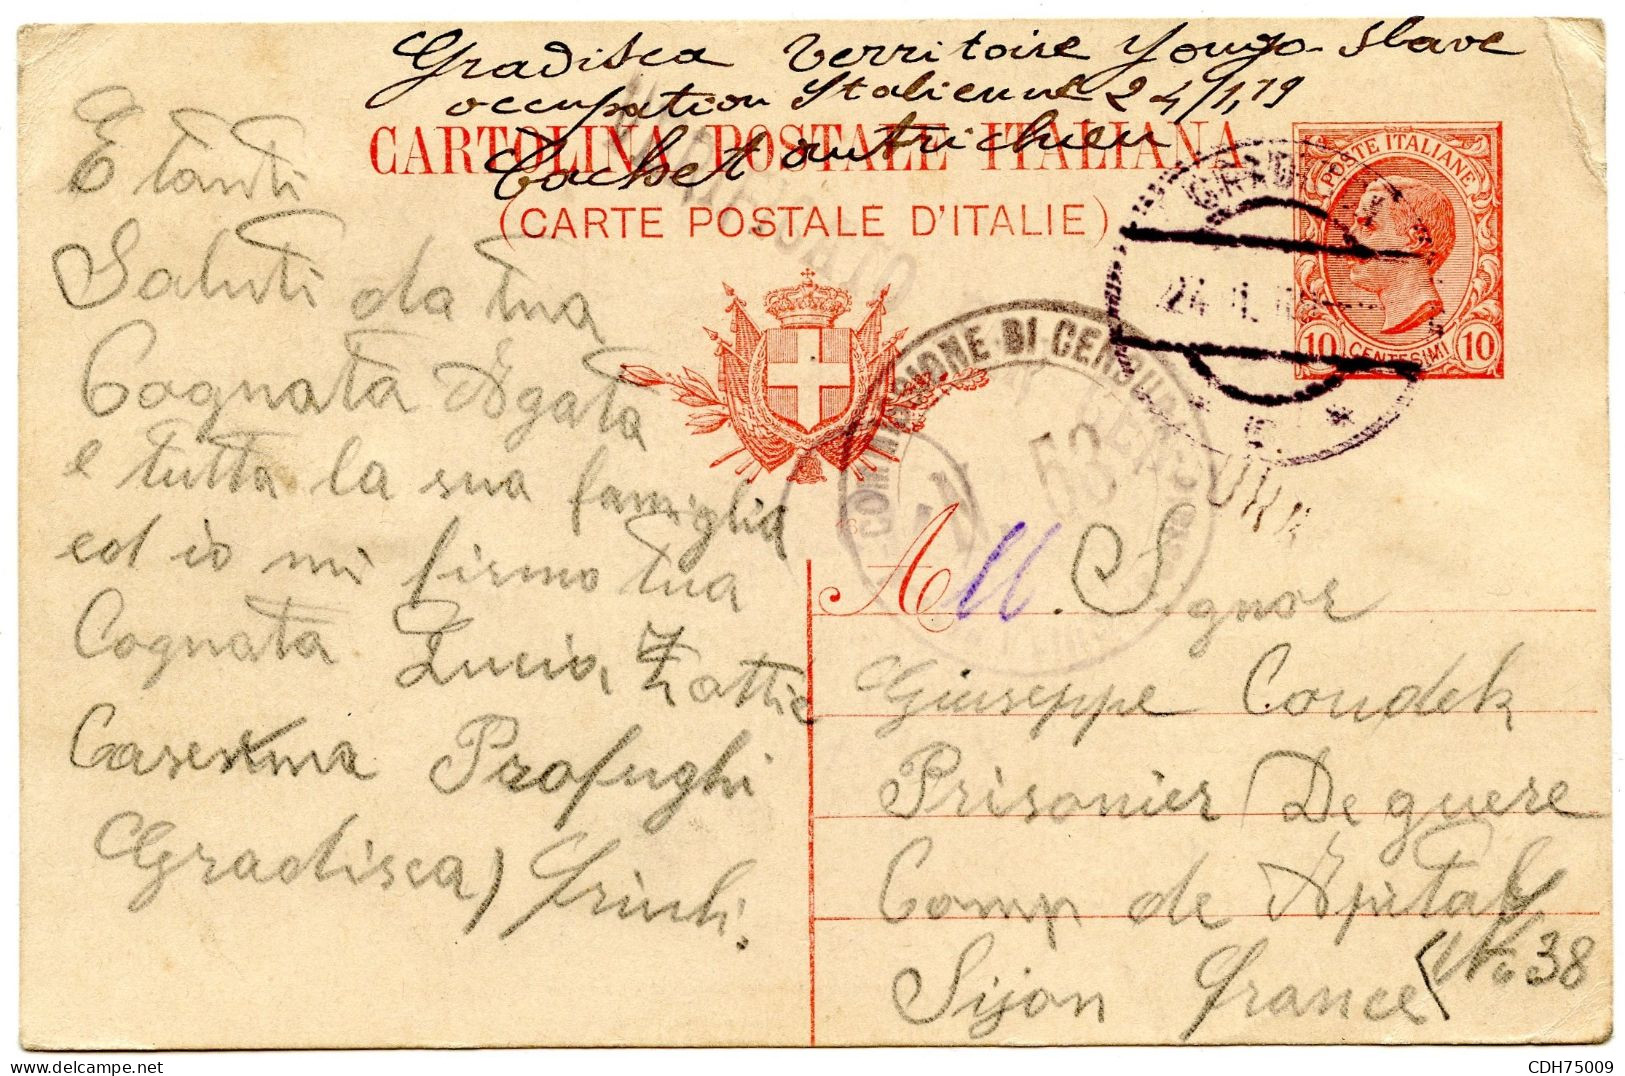 Gradisca Territoire Yougo-Slave
occupation Italienne 24/1,19
Cachet autrichien
CARTOLINA POSTALE ITALIANA
(CARTE POSTALE D'ITALIE)
POSTE ITALIANE
10 CENTESIMI 10
GRADI
24. 1.
COMMISSIONE DI CENSURA
53
CENSURA
E tanti
Saluti da tua
Cognata Agata
e tutta la sua famiglia
ed io mi firmo tua
Cognata Lucia Zottic
Caserma Profughi
(Gradisca) Friuli.
All. Signor
Giuseppe Coudek
Prisonier De guere
Camp de
Sijon France No 38
CDH75009